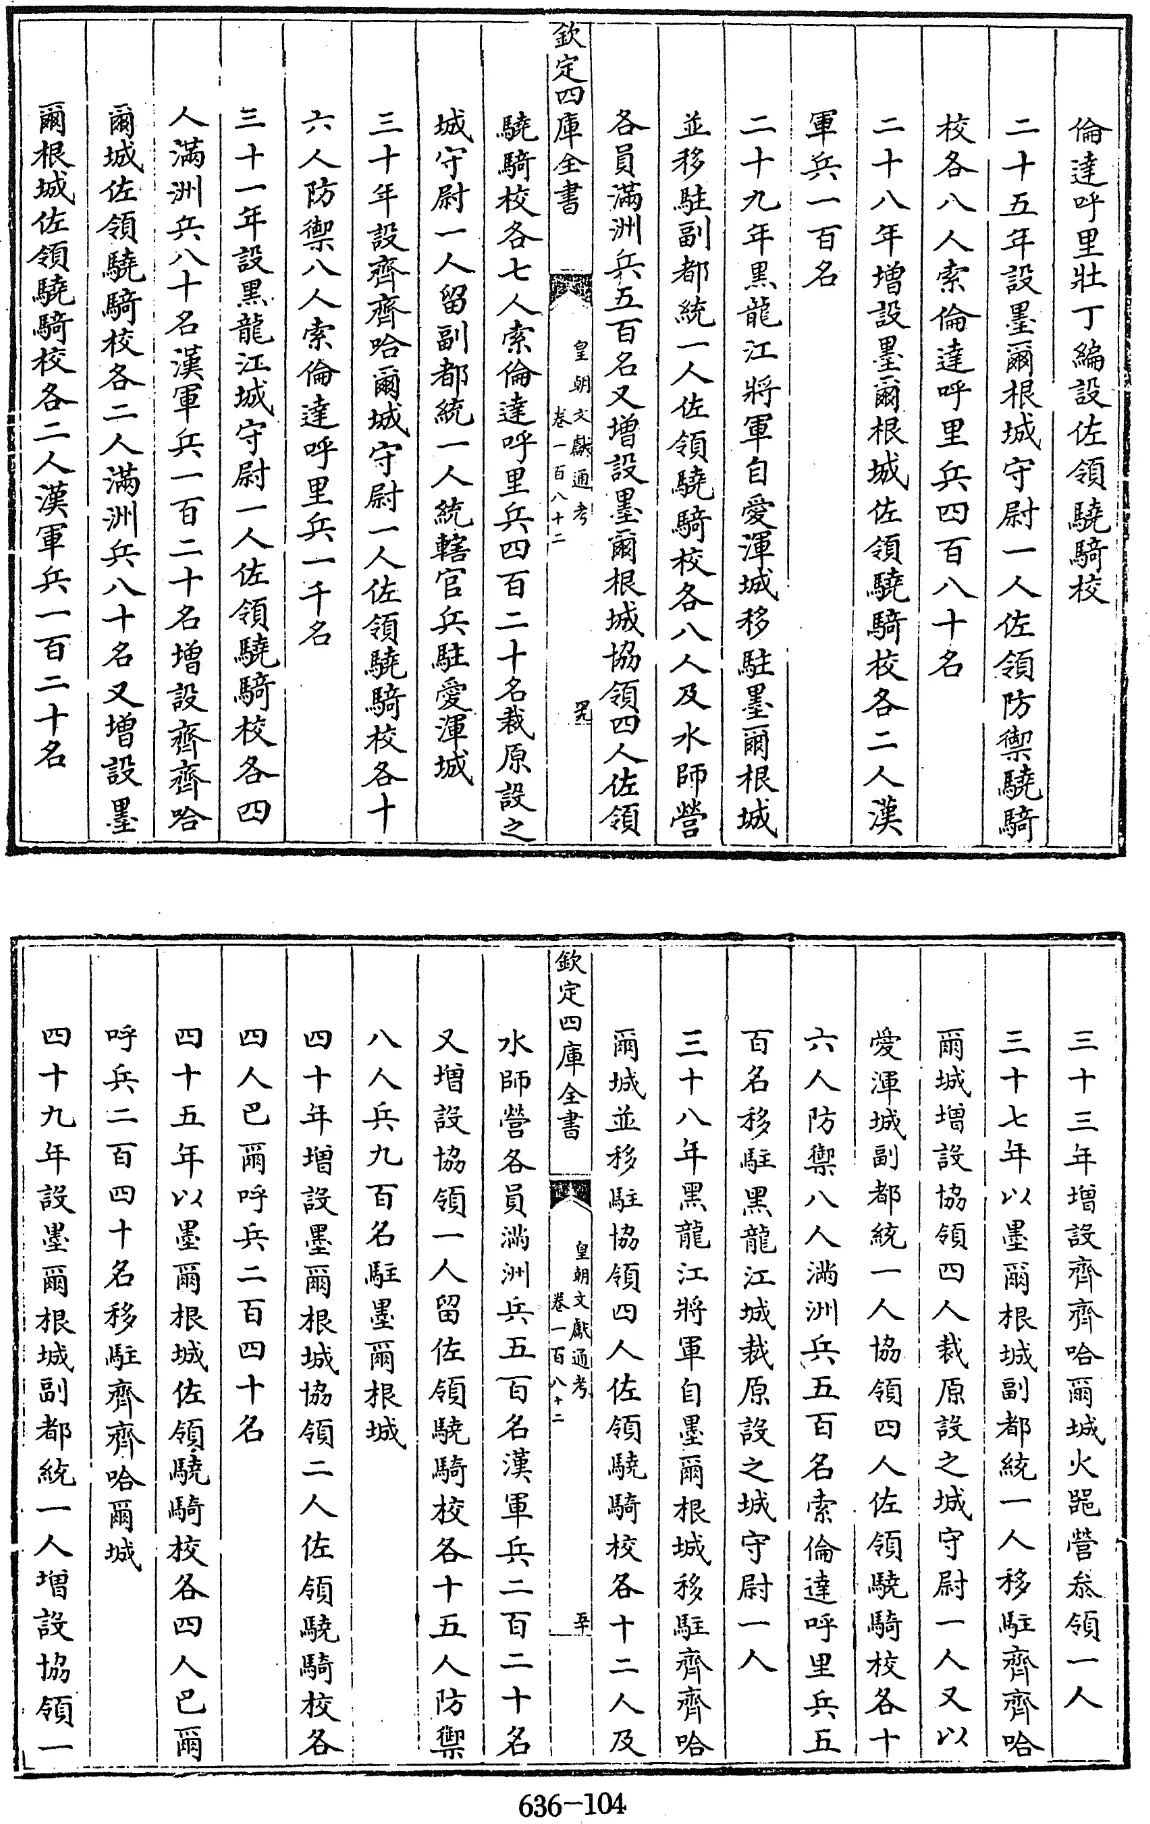 倫達呼里壯丁編設佐領驍騎校
二十五年設墨爾根城守尉一人佐領防禦驍騎
校各八人索倫達呼里兵四百八十名
二十八年增設墨爾根城佐領驍騎校各二人漢
軍兵一百名
二十九年黑龍江將軍自愛渾城移駐墨爾根城
並移駐副都統一人佐領驍騎校各八人及水師營
各員滿洲兵五百名又增設墨爾根城協領四人佐領
欽定四庫全書
皇朝文獻通考
卷一百八十二
四九
驍騎校各七人索倫達呼里兵四百二十名裁原設之
城守尉一人留副都統一人統轄官兵駐愛渾城
三十年設齊齊哈爾城守尉一人佐領驍騎校各十
六人防禦八人索倫達呼里兵一千名
三十一年設黑龍江城守尉一人佐領驍騎校各四
人滿洲兵八十名漢軍兵一百二十名增設齊齊哈
爾城佐領驍騎校各二人滿洲兵八十名又增設墨
爾根城佐領驍騎校各二人漢軍兵一百二十名
三十三年增設齊齊哈爾城火器營叅領一人
三十七年以墨爾根城副都統一人移駐齊齊哈
爾城增設協領四人裁原設之城守尉一人又以
愛渾城副都統一人協領四人佐領驍騎校各十
六人防禦八人滿洲兵五百名索倫達呼里兵五
百名移駐黑龍江城裁原設之城守尉一人
三十八年黑龍江將軍自墨爾根城移駐齊齊哈
爾城並移駐協領四人佐領驍騎校各十二人及
欽定四庫全書
皇朝文獻通考
卷一百八十二
五十
水師營各員滿洲兵五百名漢軍兵二百二十名
又增設協領一人留佐領驍騎校各十五人防禦
八人兵九百名駐墨爾根城
四十年增設墨爾根城協領二人佐領驍騎校各
四人巴爾呼兵二百四十名
四十五年以墨爾根城佐領驍騎校各四人巴爾
呼兵二百四十名移駐齊齊哈爾城
四十九年設墨爾根城副都統一人增設協領一
636-104